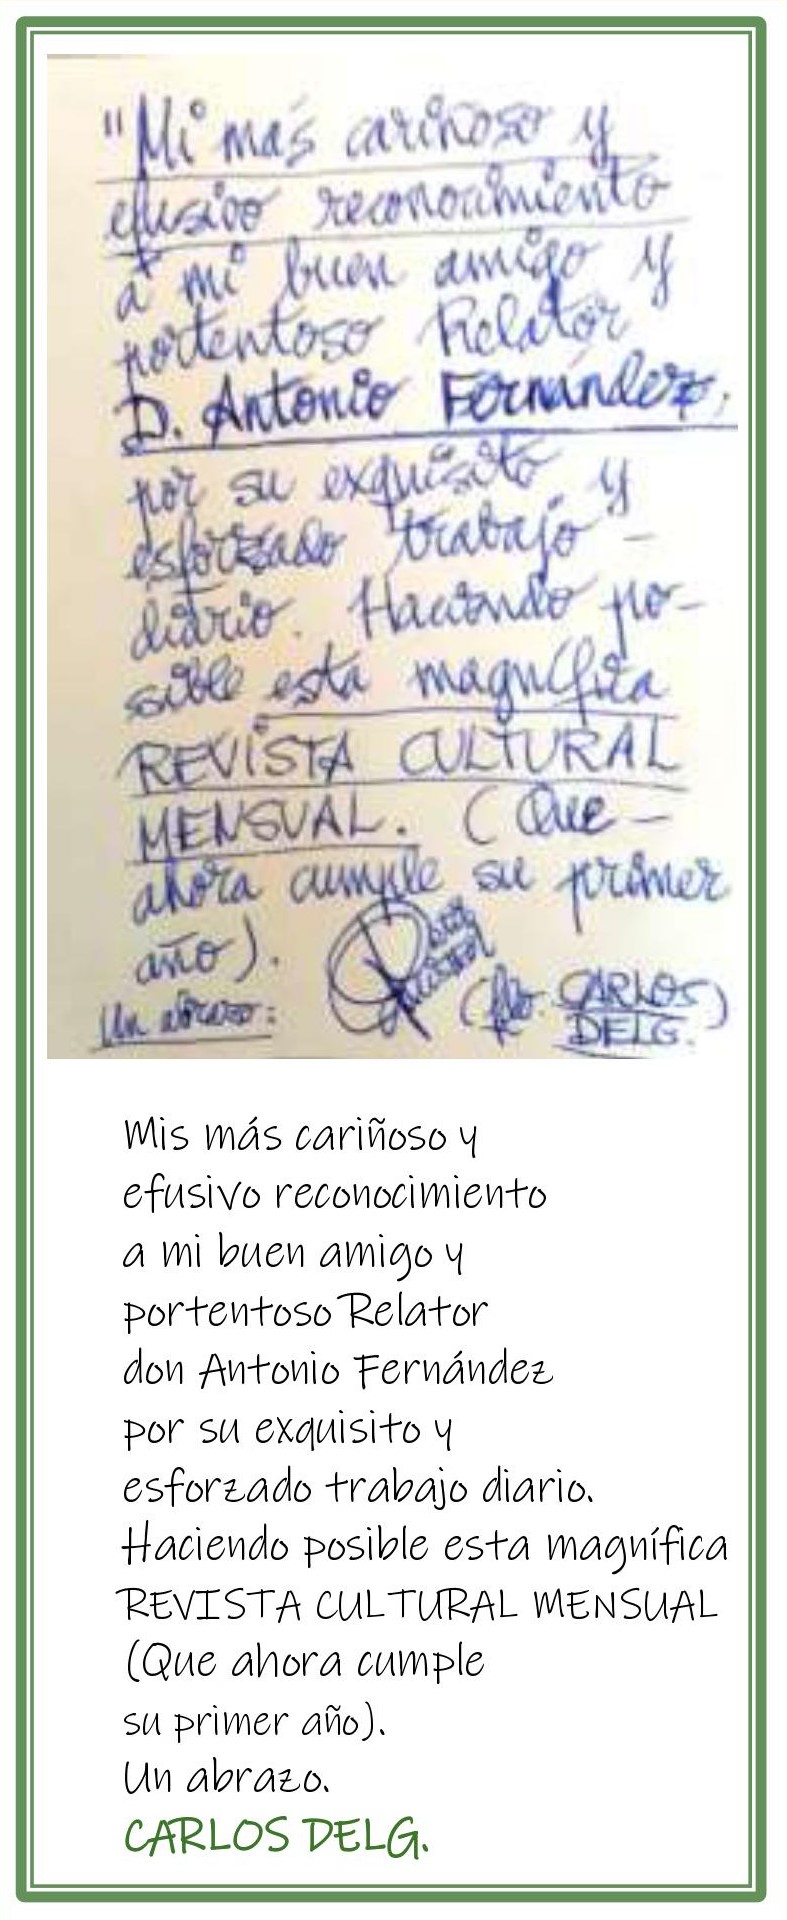 "Mi más cariñoso y
efusivo reconocimiento
a mi buen amigo y
portentoso Relator
D. Antonio Fernández,
por su exquisito y
esforzado trabajo -
diario. Haciendo po-
sible esta magnífica
REVISTA CULTURAL
MENSUAL. (Que -
ahora cumple su primer
año).
Un abrazo:
(fdo. CARLOS
DELG.)
Mis más cariñoso y
efusivo reconocimiento
a mi buen amigo y
portentoso Relator
don Antonio Fernández
por su exquisito y
esforzado trabajo diario.
Haciendo posible esta magnífica
REVISTA CULTURAL MENSUAL
(Que ahora cumple
su primer año).
Un abrazo.
CARLOS DELG.